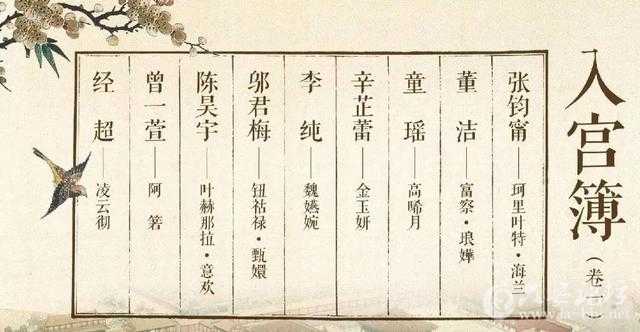 入宫簿（卷
张钧甯——珂里叶特·海兰
董洁——富察·琅嬅
童瑶——高晞月
辛芷蕾——金玉妍
李纯——魏嬿婉
邬君梅——钮祜禄·甄嬛
陈昊宇——叶赫那拉·意欢
曾一萱——阿箬
经超——凌云彻